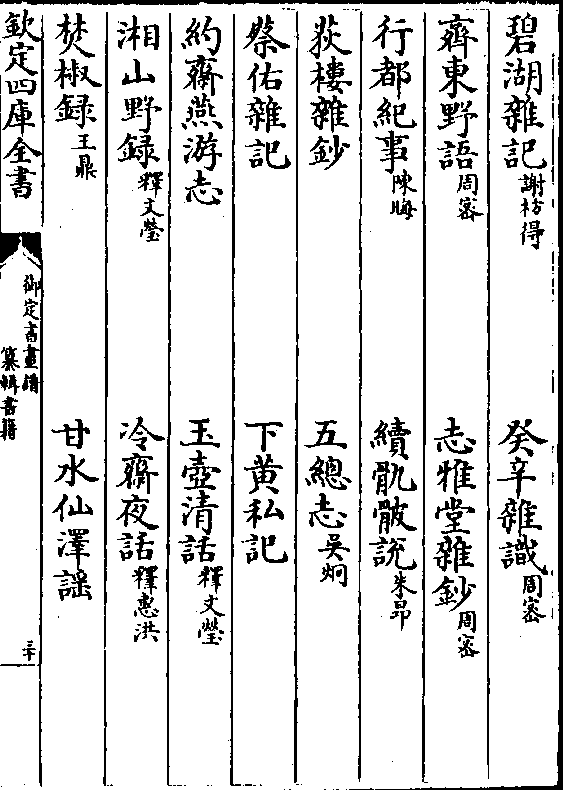 碧湖雜記謝枋得　癸辛雜識周密
齊東野語周密　志雅堂雜鈔周密
行都紀事陳晦　續骫骳說朱昂
荻樓雜鈔　五總志吳炯
蔡佑雜記　下黃私記
約齋燕游志　玉壺清話釋文瑩
湘山野録釋文瑩　冷齋夜話釋惠洪
焚椒録王鼎　甘水仙澤謡
欽定四庫全書　御定書畫譜　纂輯書籍　二十